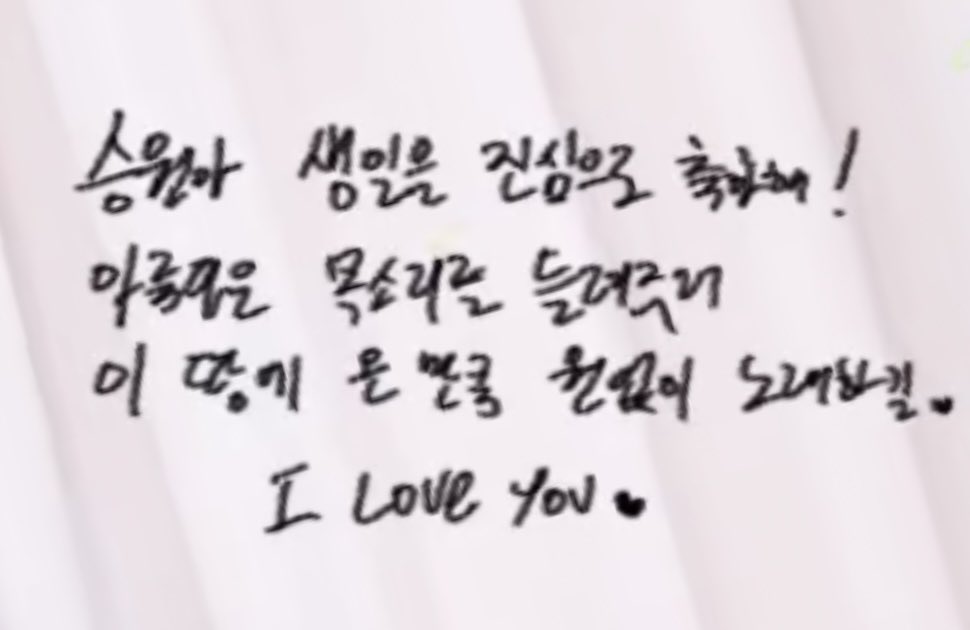 승원아 생일을 진심으로 축하해!
아름다운 목소리를 들려주러
이 땅에 온 만큼 원없이 노래하길♥
I LOVE YOU ♥